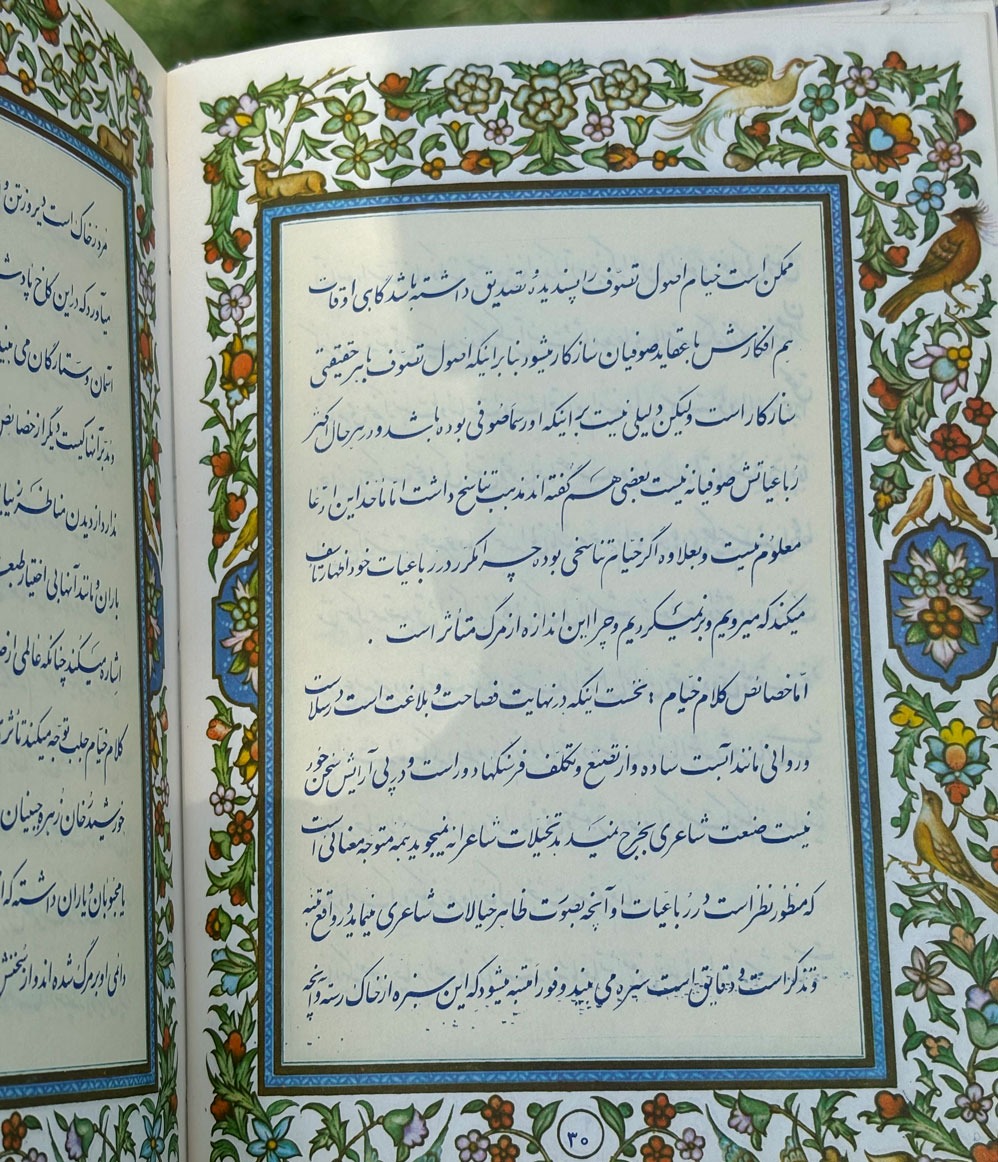 ممکن است خیام اصول تصوّف را پسندیده و تصدیق داشته باشد گاهی اوقات
هم افکارش با عقاید صوفیان سازکار میشود بنابر اینکه اصول تصوّف با هر حقیقتی
سازکار است ولیکن دلیلی نیست بر اینکه او رسماً صوفی بوده باشد و در هر حال اکثر
رُباعیاتش صوفیانه نیست بعضی هم گفته اند مذهب تناسخ داشت امّا مأخذ این ادّعا
معلوم نیست و بعلاوه اگر خیام تناسخی بوده چرا مکرر در رباعیات خود اظهار تأسف
میکند که میرویم و برنمیگردیم و چرا این اندازه از مرگ متأثر است .
امّا خصائص کلام خیّام : نخست اینکه در نهایت فصاحت و بلاغت است در سلاست
و روانی مانند آبست ساده و از تصنع و تکلف فرسنگها دور است و در پی آرایش سخن خود
نیست صنعت شاعری بخرج نمیدهد تخیلات شاعرانه نمیجوید همه متوجه معنائی است
که منظور نظر است در رباعیات او آنچه بصورت ظاهر خیالات شاعری مینماید در واقع تنبه
و تذکر است و دقایق است سبزه می بیند و فوراً متنبه میشود که این سبزه از خاک رسته و آنچه
۳۰
مُرد در خاک است دیروز تن و
میآورد که در این کاخ پادش
آسمان و ستارگان می بیند
و مُدبّر آنها کیست دیگر از خصائص
ندارد از دیدن مناظر زیبا
باران و مانند آنها بی اختیار طبعـ
اشاره میکند چنانکه عالمی از
کلام خیام جلب توجه میکند تأثر
خورشید رُخان زهره جبینان
یا محبوبان و یاران داشته که از
دائمی او بر مرگ شده اند و از سخنش